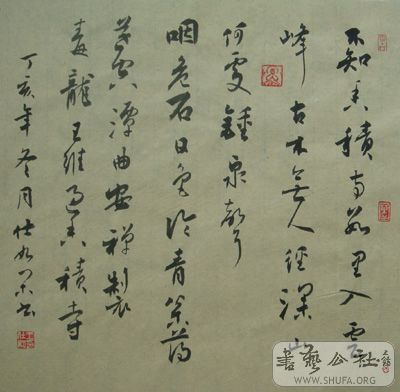 不知香積寺數里入雲
峰古木無人徑深山
何處鍾泉聲
咽危石日色冷青松薄
暮空潭曲安禪製
毒龍王維過香積寺
丁亥年冬月仕書
書藝公社
WWW.SHUFA.ORG